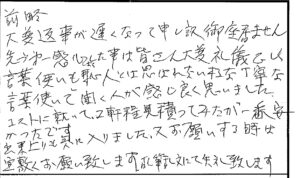 前略
大変返事が遅くなって申し訳御座居ません
先づ一番感じた事は皆さん大変礼儀正しく
言葉使いも職人とは思はれないね丁寧な
言葉使いで聞く人が感じ良く思いました。
コストに較って、2軒程見積ってみたが一番安
かったです
出来上りも気に入りました。又お願いする時は
宜敷くお願い致します 乱筆乱文にて失礼致します